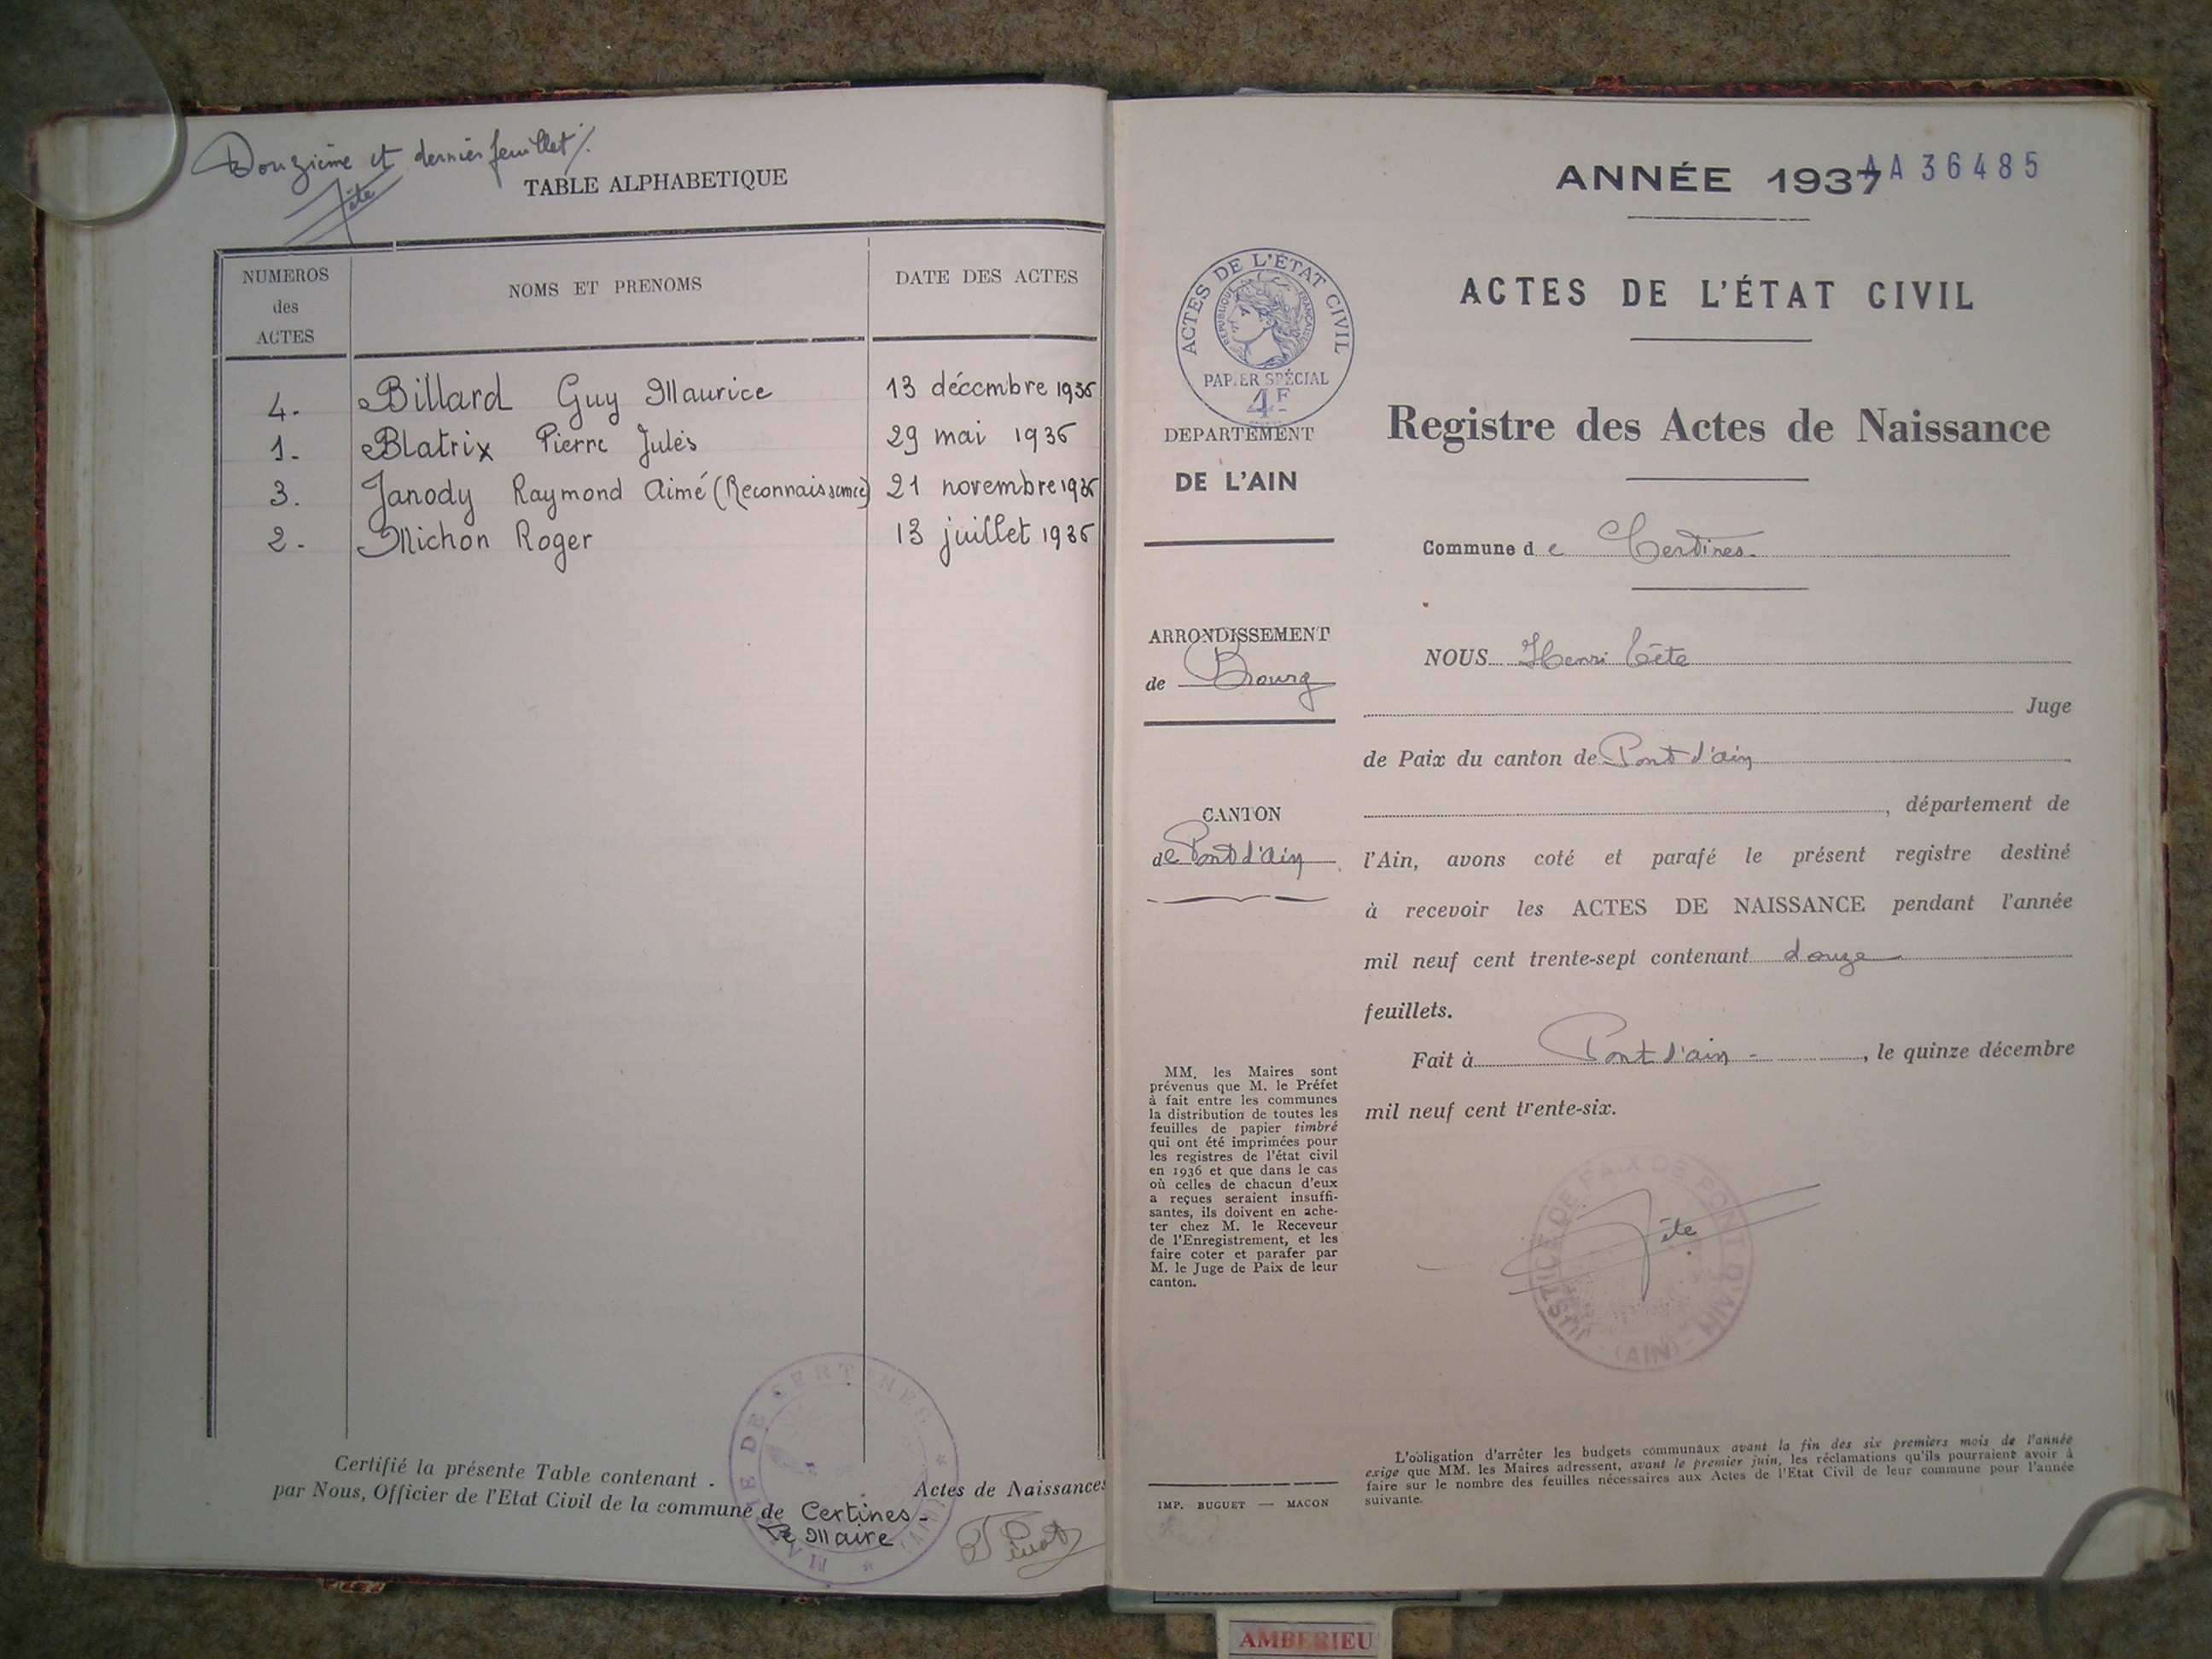 Douzième et dernier feuillet
Tête
TABLE ALPHABETIQUE
NUMEROS
des
ACTES
NOMS ET PRENOMS
DATE DES ACTES
4. Billard Guy Maurice 13 décembre 1936
1. Blatrix Pierre Jules 29 mai 1936
3. Janody Raymond Aimé (Reconnaissance) 21 novembre 1936
2. Michon Roger 13 juillet 1936
Certifié la présente Table contenant - Actes de Naissances
par Nous, Officier de l'Etat Civil de la commune de Certines -
Le Maire
MAIRIE DE CERTINES
(AIN)
ANNÉE 1937
AA 36485
ACTES DE L'ÉTAT CIVIL
RÉPUBLIQUE FRANÇAISE
PAPIER SPÉCIAL
4F
DEPARTEMENT
DE L'AIN
ARRONDISSEMENT
de Bourg
CANTON
de Pont d'Ain
MM, les Maires sont
prévenus que M. le Préfet
à fait entre les communes
la distribution de toutes les
feuilles de papier timbré
qui ont été imprimées pour
les registres de l'état civil
en 1936 et que dans le cas
où celles de chacun d'eux
a reçues seraient insuffi-
santes, ils doivent en ache-
ter chez M. le Receveur
de l'Enregistrement, et les
faire coter et parafer par
M. le Juge de Paix de leur
canton.
IMP. BUGUET — MACON
ACTES DE L'ÉTAT CIVIL
Registre des Actes de Naissance
Commune de Certines
NOUS Henri Tête
Juge
de Paix du canton de Pont d'Ain
, département de
l'Ain, avons coté et parafé le présent registre destiné
à recevoir les ACTES DE NAISSANCE pendant l'année
mil neuf cent trente-sept contenant douze
feuillets.
Fait à Pont d'Ain - , le quinze décembre
mil neuf cent trente-six.
JUSTICE DE PAIX DE PONT D'AIN
(AIN)
Tête
L'obligation d'arrêter les budgets communaux avant la fin des six premiers mois de l'année
exige que MM. les Maires adressent, avant le premier juin, les réclamations qu'ils pourraient avoir à
faire sur le nombre des feuilles nécessaires aux Actes de l'Etat Civil de leur commune pour l'année
suivante.
AMBERIEU